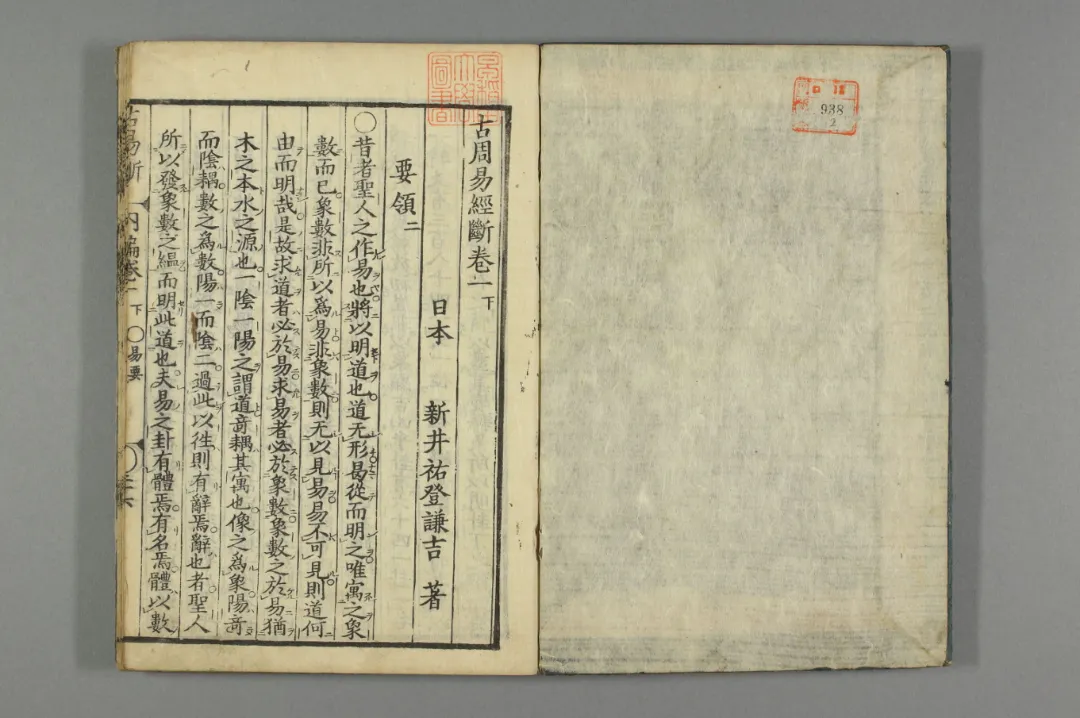 古周易經斷卷一下
日本 新井祐登謙吉 著
要領二
〇昔者聖人之作易也將以明道也道无形曷從而明之唯寓之象
數而已象數非所以爲易非象數則无以見易易不可見則道何
由而明哉是故求道者必於易求易者必於象數象數之於易猶
木之本水之源也一陰一陽之謂道竒耦其寓也像之爲象陽竒
而陰耦數之爲數陽一而陰二過此以徃則有辭焉辭也者聖人
所以發象數之緼而明此道也夫易之卦有體焉有名焉體以數
古易斷 内編卷一 下 〇易要
938
2